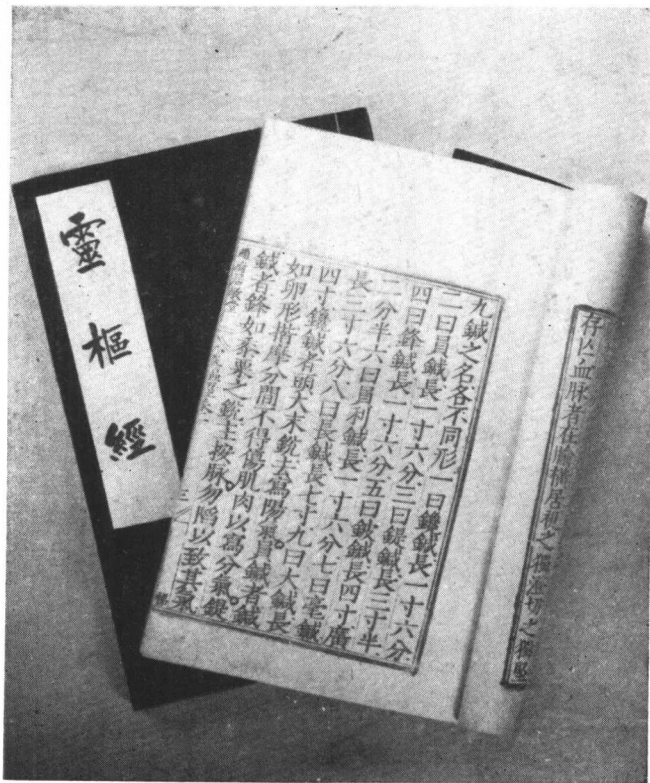 靈樞經
存亾血脉者在腧橫居視之獨澄切之獨堅
九鍼之名各不同形一曰鑱鍼長一寸六分
二曰員鍼長一寸六分三曰鍉鍼長三寸半
四曰鋒鍼長一寸六分五曰鈹鍼長四寸廣
二分半六曰員利鍼長一寸六分七曰毫鍼
長三寸六分八曰長鍼長七寸九曰大鍼長
四寸鑱鍼者頭大末銳去寫陽氣。員鍼者鍼
如卵形揩摩分間不得傷肌肉以寫分氣。鍉
鍼者鋒如黍粟之銳主按脉勿陷以致其氣
三